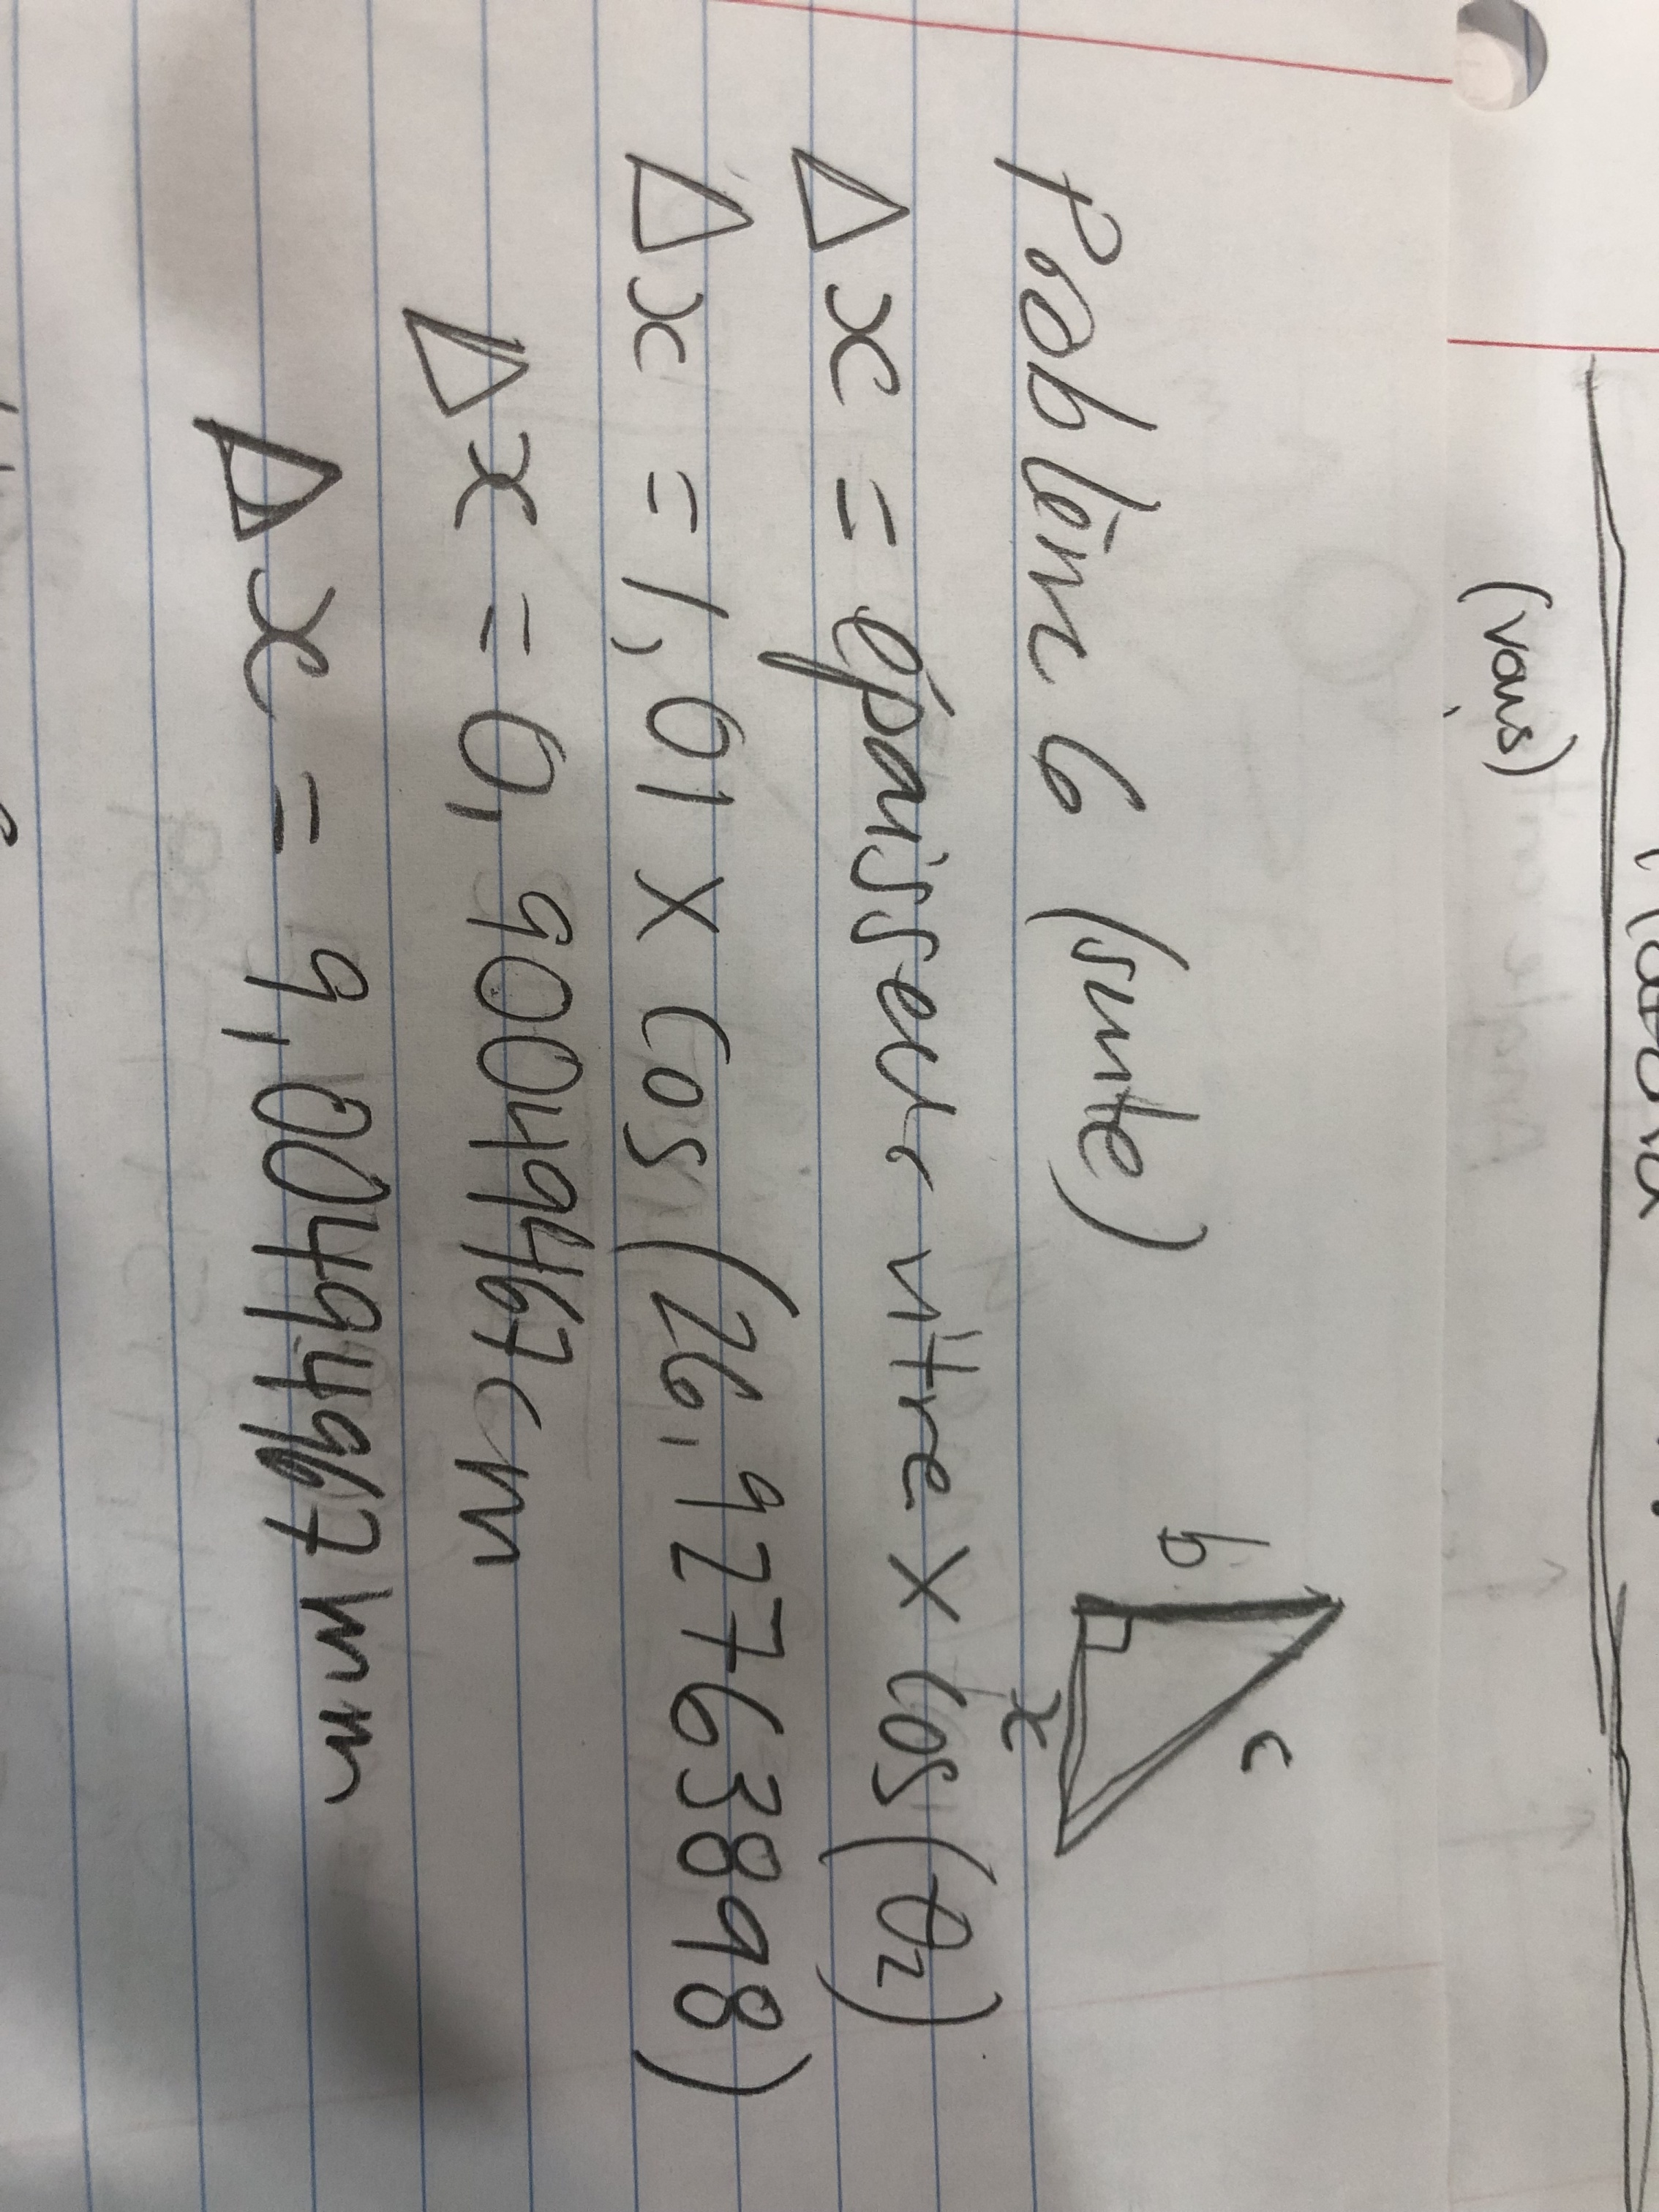 (vous)
Poblèm 6 (suite)
b
c
x
Δx = épaisseur vitre x cos(θ2)
Δx = 1,01 x cos(26,92763898)
Δx = 0,90049467 cm
Δx = 9,0049467 mm